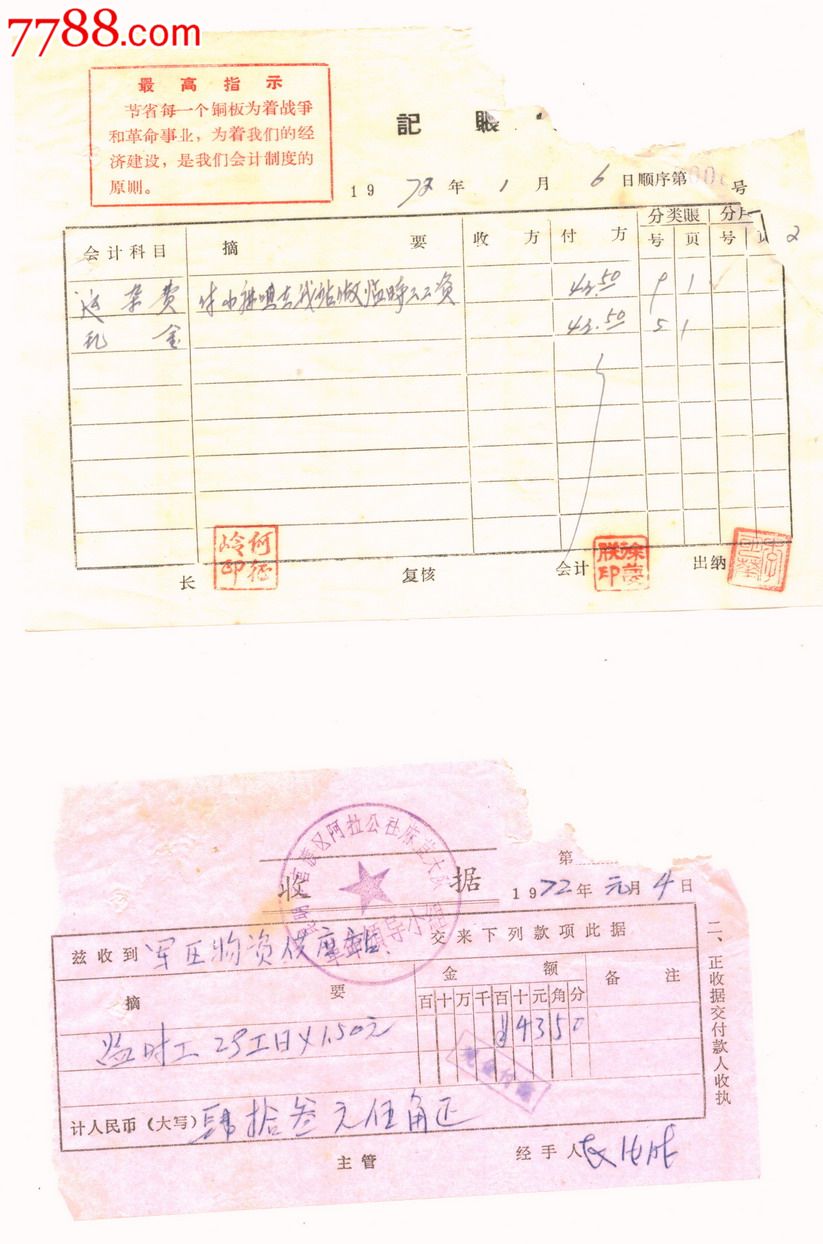 7788.com
最高指示
节省每一个铜板为着战争
和革命事业，为着我们的经
济建设，是我们会计制度的
原则。
記 賬
1972年1月6日顺序第 号
会计科目 摘要 收方 付方 分类賬 号 页 号 2
杂费 临时工工资 43.50 9 1
现金 43.50 5 1
长 复核 会计 出纳
何 岭印
徐 朕印
官渡区阿拉公社麻苴大队
第
收据 1972年元月4日
兹收到 军区物资供应站 交来下列款项此据
摘要 金额 备注
百十万千百十元角分
临时工 29工日×1.50元 43 50
计人民币（大写）肆拾叁元伍角正
主管 经手人
二、正收据交付款人收执